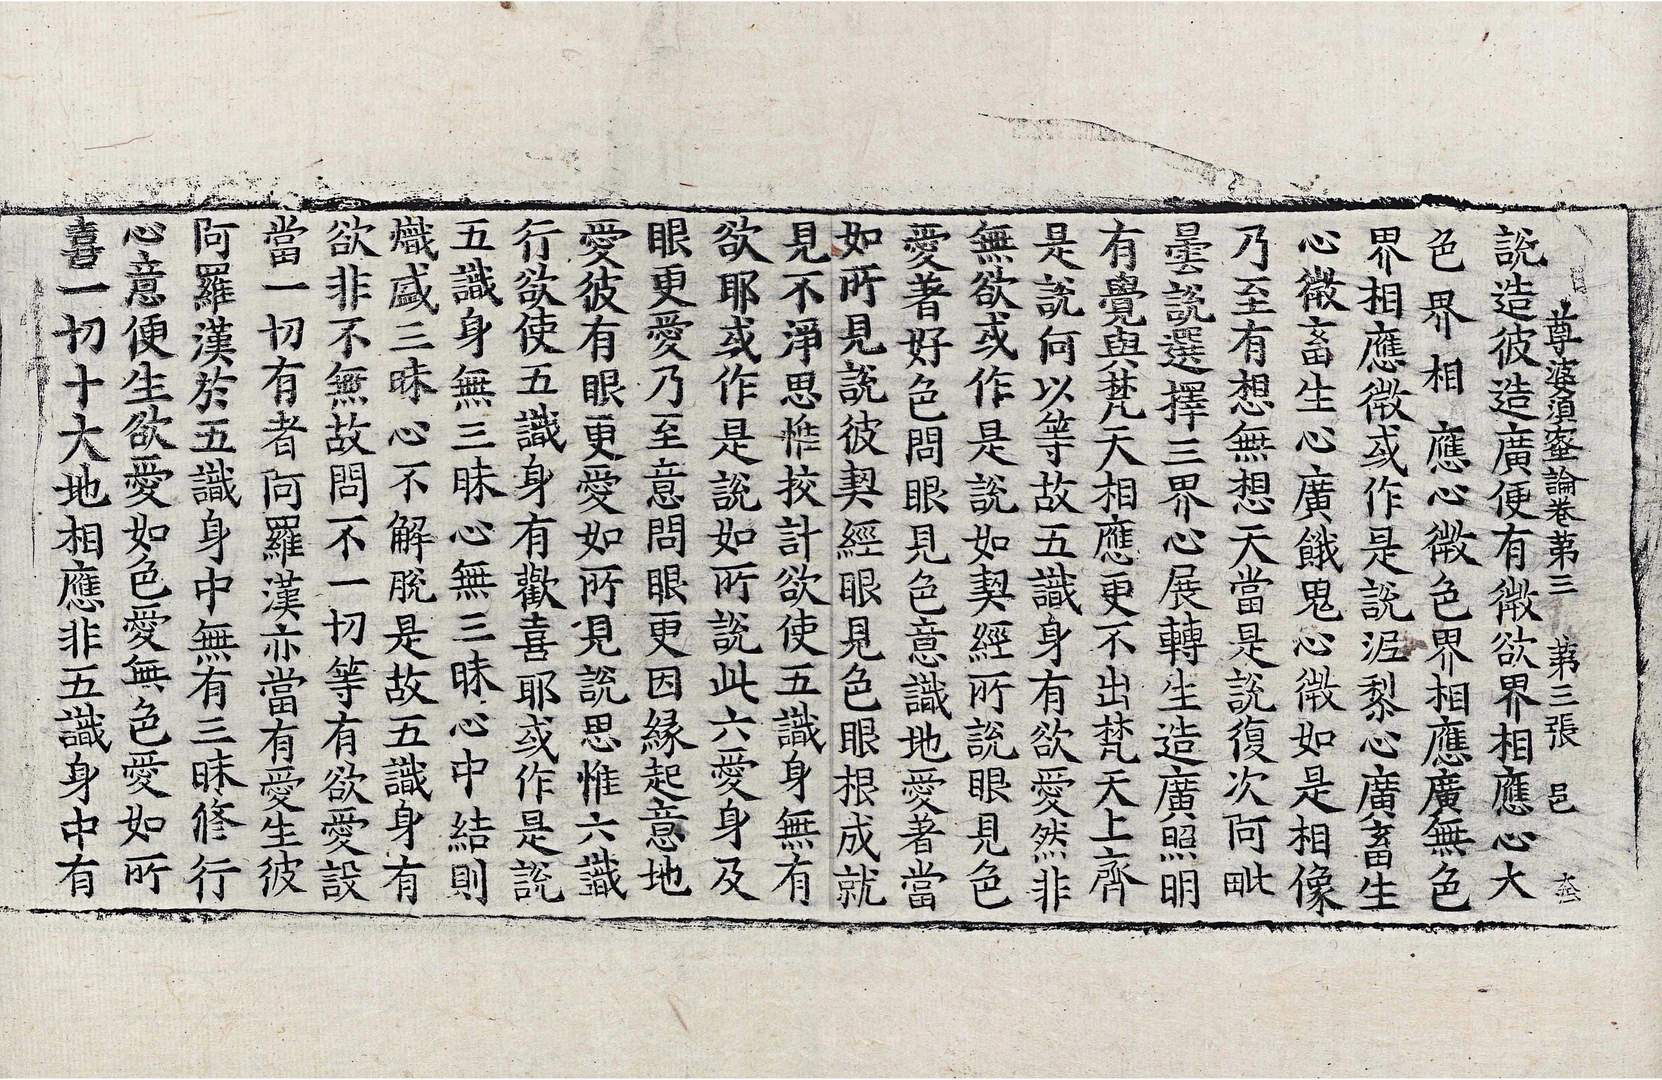 尊婆湏蜜論卷苐三　苐三張　邑
說造彼造廣便有微欲界相應心大
色界相應心微色界相應廣無色
界相應微或作是說泥犁心廣畜生
心微畜生心廣餓鬼心微如是相像
乃至有想無想天當是說復次阿毗
曇說選擇三界心展轉生造廣照明
有覺與梵天相應更不出梵天上齊
是說何以等故五識身有欲愛然非
無欲或作是說如契經所說眼見色
愛著好色問眼見色意識地愛著當
如所見說彼契經眼見色眼根成就
見不淨思惟挍計欲使五識身無有
欲耶或作是說如所說此六愛身及
眼更愛乃至意問眼更因緣起意地
愛彼有眼更愛如所見說思惟六識
行欲使五識身有歡喜耶或作是說
五識身無三昧心無三昧心中結則
熾盛三昧心不解脫是故五識身有
欲非不無故問不一切等有欲愛設
當一切有者阿羅漢亦當有愛生彼
阿羅漢於五識身中無有三昧修行
心意便生欲愛如色愛無色愛如所
喜一切十大地相應非五識身中有